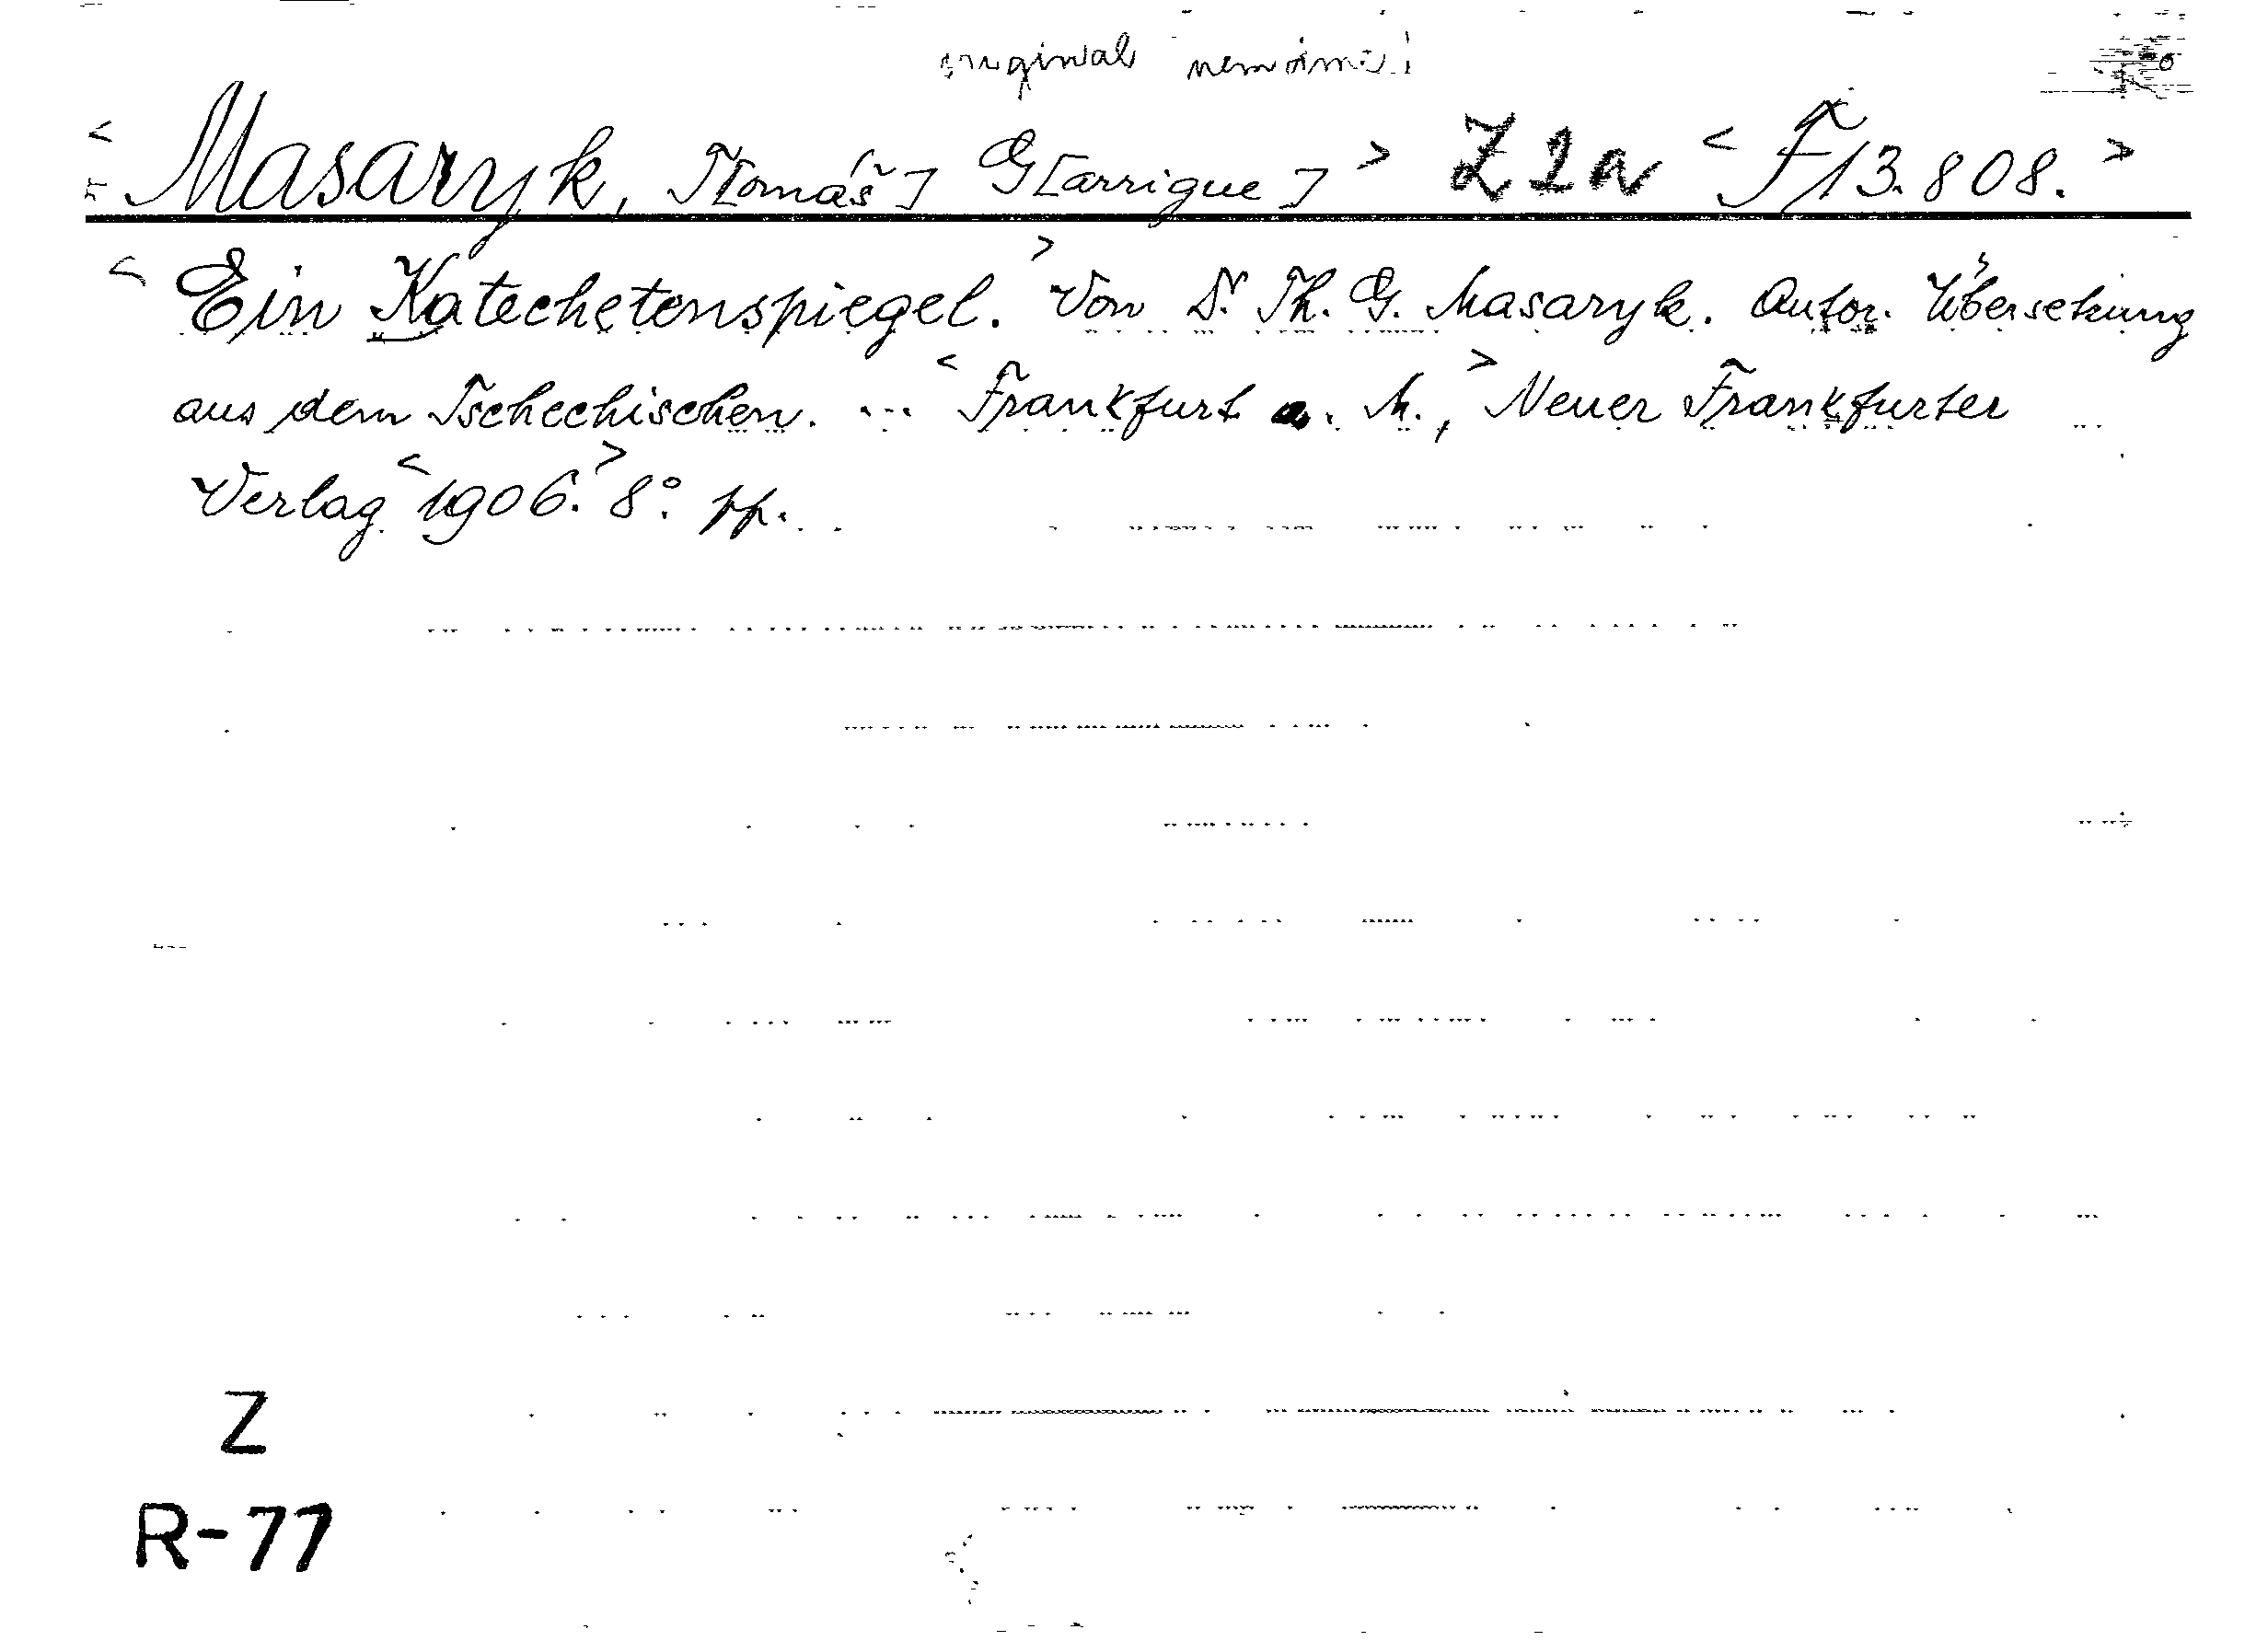 original nemáme!
< Masaryk, T[omáš] G[arrigue] > Z 2a < F 13.808. >
< Ein Katechetenspiegel. > Von Dr. Th. G. Masaryk. Autor. Übersetzung
aus dem Tschechischen. ... < Frankfurt a. M., > Neuer Frankfurter
Verlag < 1906. > 8°. pp.
Z
R-77